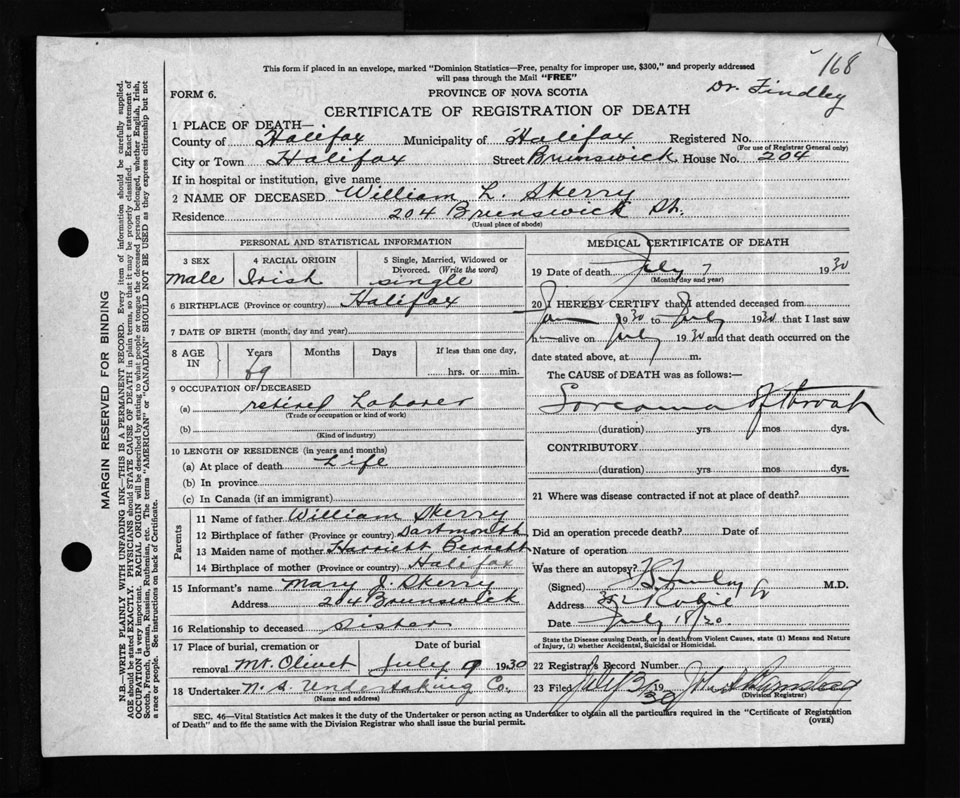 168
This form if placed in an envelope, marked "Dominion Statistics—Free, penalty for improper use, $300," and properly addressed
will pass through the Mail "FREE"
Dr. Findley
FORM 6.
PROVINCE OF NOVA SCOTIA
CERTIFICATE OF REGISTRATION OF DEATH
1 PLACE OF DEATH—
County of Halifax Municipality of Halifax Registered No.
(For use of Registrar General only)
City or Town Halifax Street Brunswick House No. 204
If in hospital or institution, give name
2 NAME OF DECEASED William L. Skerry
Residence 204 Brunswick St.
(Usual place of abode)
PERSONAL AND STATISTICAL INFORMATION
3 SEX 4 RACIAL ORIGIN 5 Single, Married, Widowed or
Divorced. (Write the word)
male Irish single
6 BIRTHPLACE (Province or country) Halifax
7 DATE OF BIRTH (month, day and year)
8 AGE IN Years Months Days If less than one day,
69 hrs. or min.
9 OCCUPATION OF DECEASED
(a) retired Laborer
(Trade or occupation or kind of work)
(b)
(Kind of industry)
10 LENGTH OF RESIDENCE (in years and months)
(a) At place of death Life
(b) In province
(c) In Canada (if an immigrant)
Parents
11 Name of father William Skerry
12 Birthplace of father (Province or country) Dartmouth
13 Maiden name of mother Harriett Bennett
14 Birthplace of mother (Province or country) Halifax
15 Informant's name Mary J. Skerry
Address 204 Brunswick
16 Relationship to deceased sister
17 Place of burial, cremation or Date of burial
removal Mt. Olivet July 9 1930
18 Undertaker N. S. Undertaking Co.
(Name and address)
MEDICAL CERTIFICATE OF DEATH
19 Date of death July 7 1930
(Month, day and year)
20 I HEREBY CERTIFY that I attended deceased from
Jan 1930 to July 1930 that I last saw
h alive on July 1930 and that death occurred on the
date stated above, at m.
The CAUSE of DEATH was as follows:—
Sarcoma of throat
(duration) yrs. mos. dys.
CONTRIBUTORY
(duration) yrs. mos. dys.
21 Where was disease contracted if not at place of death?
Did an operation precede death? Date of
Nature of operation
Was there an autopsy?
(Signed) M.D.
Address Robie
Date July 18/30
State the Disease causing Death, or in death from Violent Causes, state (1) Means and Nature
of Injury, (2) whether Accidental, Suicidal or Homicidal.
22 Registrar's Record Number
23 Filed July 31 1930
(Division Registrar)
SEC. 46—Vital Statistics Act makes it the duty of the Undertaker or person acting as Undertaker to obtain all the particulars required in the "Certificate of Registration
of Death" and to file the same with the Division Registrar who shall issue the burial permit.
(OVER)
MARGIN RESERVED FOR BINDING
N.B.—WRITE PLAINLY WITH UNFADING INK—THIS IS A PERMANENT RECORD. Every item of information should be carefully supplied.
AGE should be stated EXACTLY. PHYSICIANS should STATE CAUSE OF DEATH in plain terms, so that it may be properly classified. Exact statement of
OCCUPATION is very important. RACIAL ORIGIN will be described by stating to what people or tongue the deceased person belonged, whether English, Irish,
Scotch, French, German, Russian, Ruthenian, etc. The terms "AMERICAN" or "CANADIAN" SHOULD NOT BE USED as they express citizenship but not
a race or people. See instructions on back of Certificate.